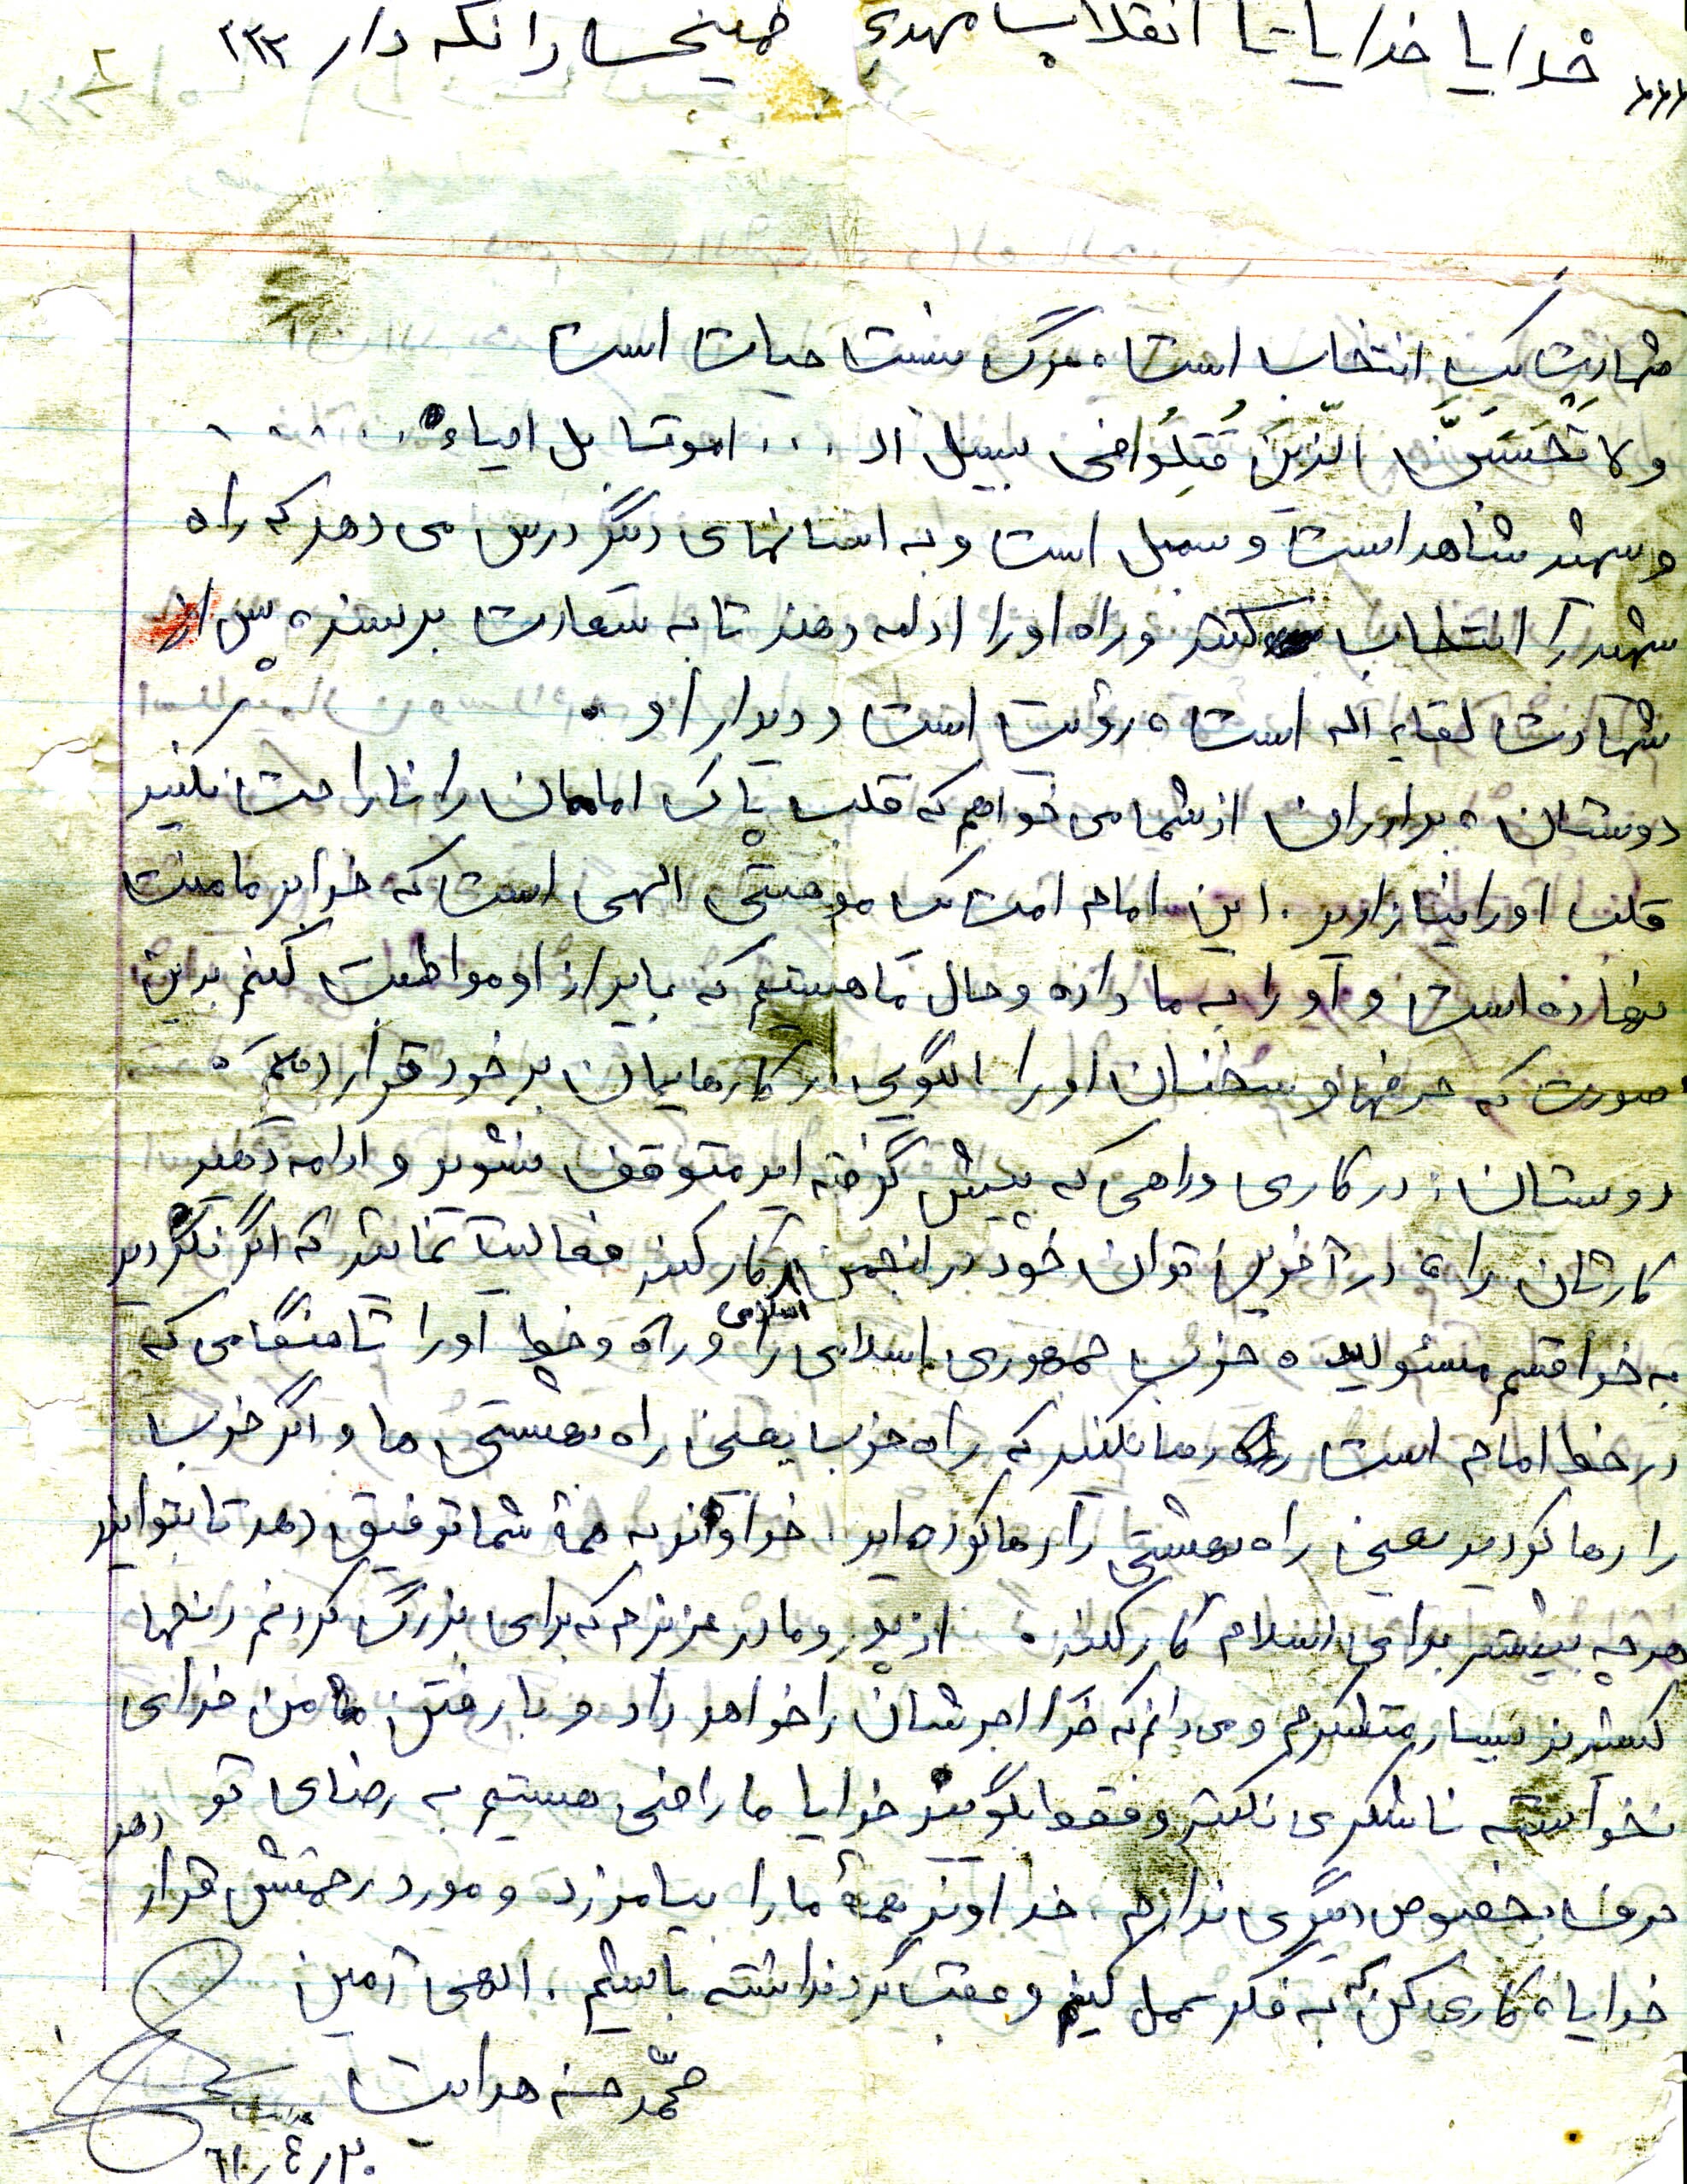 خدایا خدایا تا انقلاب مهدی خمینی را نگه دار
شهادت یک انتخاب است، مرگ نیست حیات است
ولا تَحْسَبَنَّ الَّذینَ قُتِلُوا فی سبیل الله ... امواتا بل احیاء ...
و شهید شاهد است و سمبل است و به انسانهای دیگر درس می دهد که راه
شهید را انتخاب کنند و راه او را ادامه دهند تا به سعادت برسند، پس از
شهادت لقاء الله است، رؤیت است و دیدار او.
دوستان، برادران از شما می خواهم که قلب پاک امامان را ناراحت نکنید
قلب او را نیازارید. این امام امت یک موهبتی الهی است که خدا بر ما منت
نهاده است و او را به ما داده و حال ما هستیم که باید از او مواظبت کنیم بدین
صورت که حرفها و سخنان او را الگویی در کارهایمان بر خود قرار دهیم.
دوستان: در کاری و راهی که پیش گرفته اید متوقف نشوید و ادامه دهید
کارتان را، در آخرین توان خود در انجمن کار کنید فعالیت نمائید که اگر نکردید
به خدا قسم مسئولید. حزب جمهوری اسلامی را و راه و خط او را تا هنگامی که
اسلامی
در خط امام است رها نکنید که راه حزب یعنی راه بهشتی ها و اگر حزب
را رها کردید یعنی راه بهشتی را رها کرده اید. خداوند به همهٔ شما توفیق دهد تا بتوانید
هر چه بیشتر برای اسلام کار کنید. از پدر و مادر عزیزم که برای بزرگ کردنم رنجها
کشیدند بسیار متشکرم و می دانم که خدا اجرشان را خواهد داد و با رفتن من خدای
نخواسته ناشکری نکنید و فقط بگوئید خدایا ما راضی هستیم به رضای تو
حرف بخصوص دیگری ندارم، خداوند همهٔ ما را بیامرزد و مورد رحمتش قرار دهد
خدایا، کاری کن که به فکر عمل کنیم و عقب گرد نداشته باشیم. الهی آمین
محمّد حسن هدایت
هدایت
۶۱/۴/۲۰